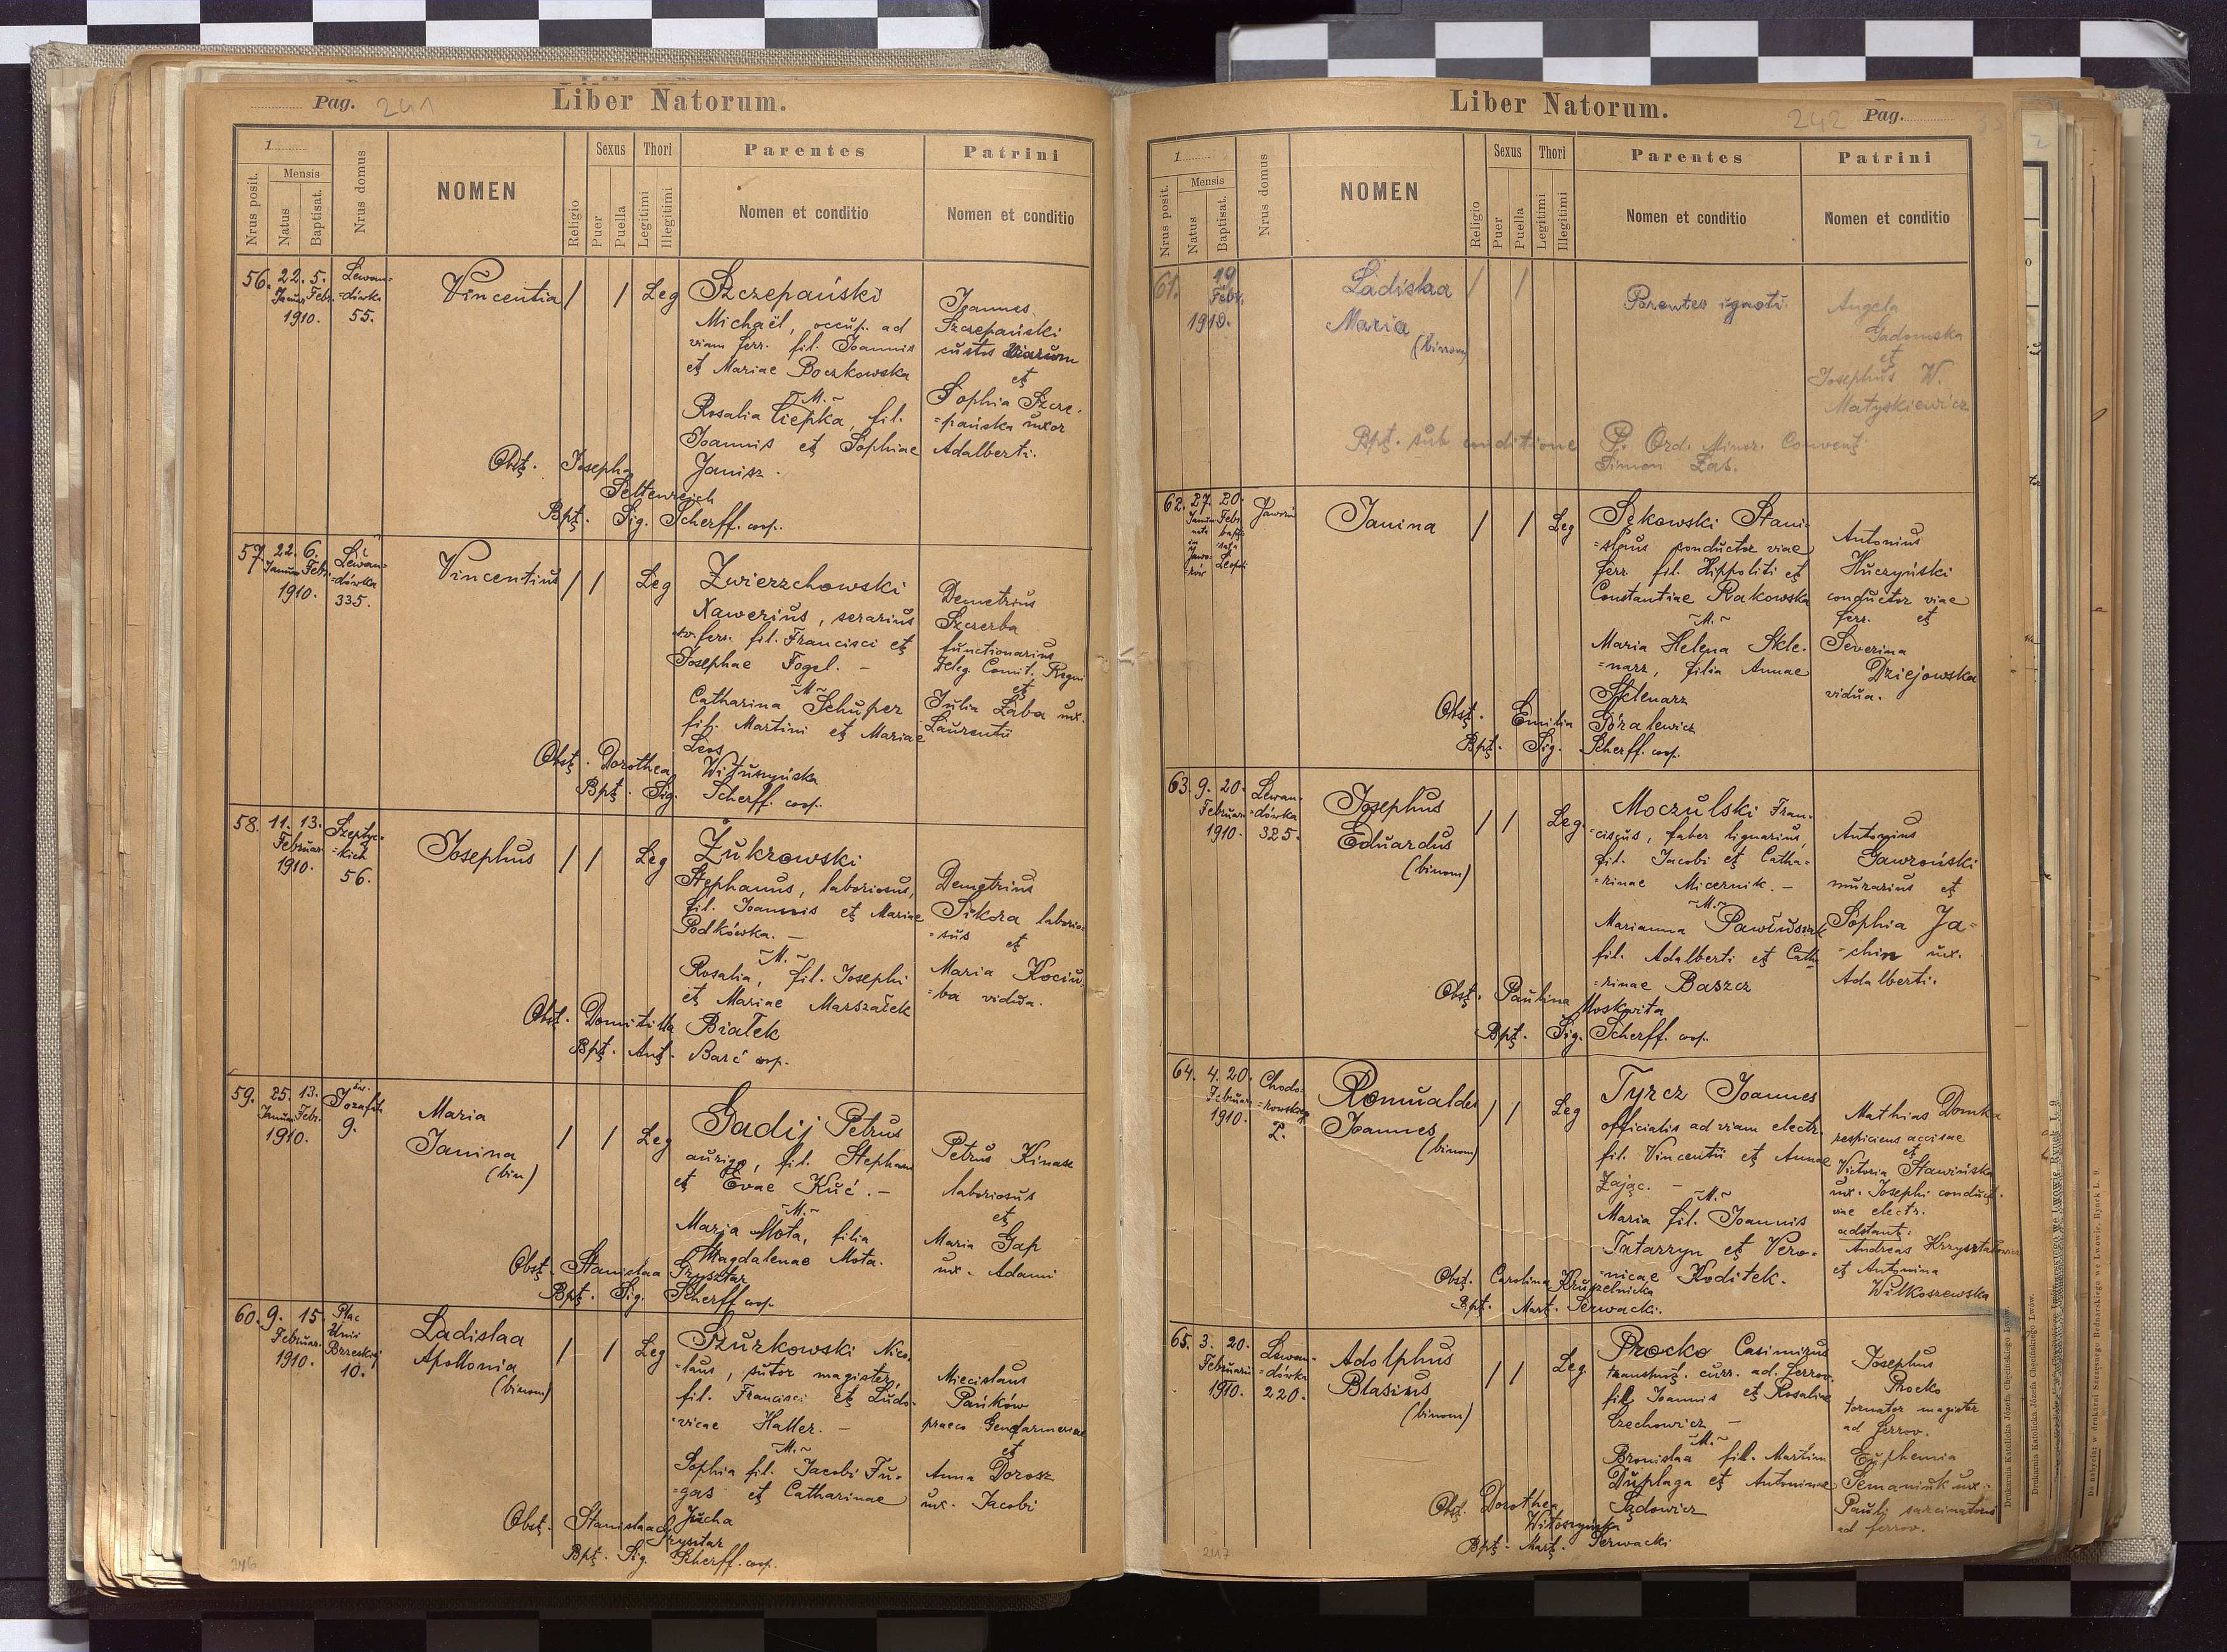 Pag. 241
Liber Natorum.
1
Nrus posit.
Mensis
Natus
Baptisat.
Nrus domus
NOMEN
Religio
Sexus
Puer
Puella
Thori
Legitimi
Illegitimi
Parentes
Nomen et conditio
Patrini
Nomen et conditio
56. 22. 5. Lewan-
Januar Febr. =dówka
1910. 55.
Vincentia / / Leg
Szczepański
Michaël, occup. ad
viam ferr. fil. Joannis
et Mariae Boczkowska
~M.~
Rosalia Ciepka, fil.
Joannis et Sophiae
Janisz.
Joannes
Szczepański
custos viarum
et
Sophia Szcze-
=pańska uxor
Adalberti.
Obst. Josepha
Seltenreich
Bpt. Sig. Scherff. coop.
57. 22. 6. Lewan-
Januar Febr. =dówka
1910. 335.
Vincentius / / Leg
Zwierzchowski
Xawerius, serarius
fil. Francisci et
Josephae Fogel. -
~M~
Catharina Schuper
fil. Martini et Mariae
Leos
Demetrius
Szczerba
functionarius
Teleg. Comit. Regni
et
Julia Łaba ux.
Laurentii
Obst. Dorothea Wituszyńska
Bpt. Sig. Scherff. coop.
58. 11. 13. Szeptyc-
Februar =kich
1910. 56.
Josephus / / Leg
Żukrowski
Stephanus, laboriosus,
fil. Joannis et Mariae
Podkówka. -
~M.~
Rosalia, fil. Josephi
et Mariae Marszałek
Demetrius
Sikora laborio-
=sus et
Maria Kociu-
=ba vidua.
Obst. Domitilla Białek
Bpt. Ant. Barć coop.
59. 25. 13. św.
Januar Febr. Jozafata
1910. 9.
Maria
Janina
(bin)
/ / Leg
Gadij Petrus
auriga, fil. Stephani
et Evae Kuć. -
~M.~
Marja Mota, filia
Magdalenae Mota.
Petrus Kinasz
laboriosus
et
Maria Gap
ux. Adami
Obst. Stanislaa Grysztar
Bpt. Sig. Scherff coop.
60. 9. 15. Plac
Februar. Unii
1910. Brzeskiej
10.
Ladislaa
Apollonia
(binom)
/ / Leg
Szurkowski Nico-
=laus, sutor magister,
fil. Francisci et Ludo-
=vicae Haller. -
~M.~
Sophia fil. Jacobi Fu-
=gas et Catharinae
Jucha
Miecislaus
Pańków
praeco Gendarmeriae
et
Anna Dorosz
ux. Jacobi
Obst. Stanislaa Grysztar
Bpt. Sig. Scherff. coop.
246
Liber Natorum.
242 Pag.
1
Nrus posit.
Mensis
Natus
Baptisat.
Nrus domus
NOMEN
Religio
Sexus
Puer
Puella
Thori
Legitimi
Illegitimi
Parentes
Nomen et conditio
Patrini
Nomen et conditio
61. 19
Febr.
1910.
Ladislaa
Maria
(binom)
/ /
Parentes ignoti.
Angela
Gadomska
et
Josephus W.
Matyskiewicz
Bpt. sub conditione P. Ord. Minor. Convent
Simon Zas.
62. 27. 20. Jaworów
Januar Febr.
nata bapti-
in sata
Jawo- Leopoli
=rów
Janina / / Leg
Sękowski Stani-
=slaus conductor viae
ferr. fil. Hippoliti et
Constantiae Rakowska
~M.~
Maria Helena Skle-
=narz, filia Annae
Sklenarz
Antonius
Huczyński
conductor viae
ferr. et
Severina
Dziejowska
vidua.
Obst. Emilia Góralewicz
Bpt. Sig. Scherff. coop.
63. 9. 20. Lewan-
Februar =dówka
1910. 325.
Josephus
Eduardus
(binom)
/ / Leg.
Moczulski Fran-
=ciscus, faber lignarius,
fil. Jacobi et Catha-
=rinae Micernik. -
~M.~
Marianna Pawluszak
fil. Adalberti et Catha-
=rinae Baszcz
Antonius
Gawroński
murarius et
Sophia Ja-
=chim ux.
Adalberti.
Obst. Paulina Moskwita
Bpt. Sig. Scherff. coop.
64. 4. 20. Chodo-
Februar =rowskiego
1910. 2.
Romualdus
Joannes
(binom)
/ / Leg
Tyrcz Joannes
officialis ad viam electr.
fil. Vincentii et Annae
Zając. -
~M.~
Maria fil. Joannis
Tatarzyn et Vero-
=nicae Koditek.
Mathias Domka
respiciens accisae
et
Victoria Stawińska
ux. Josephi conduct.
viae electr.
adstant:
Andreas Krzyształowicz
et Antonina
Wilkoszewska
Obst. Carolina Krupelnicka
Bpt. Mart. Serwacki.
65. 3. 20. Lewan-
Februarii =dówka
1910. 220.
Adolphus
Blasius
(binom)
/ / Leg.
Procko Casimirus
curr. ad. ferrov.
fil. Joannis et Rosaliae
Czechowicz -
~M.~
Bronislaa fil. Martini
Duplaga et Antoninae
Sądowicz
Josephus
Procko
tornator magister
ad ferrov.
Euphemia
Semaniuk ux.
Pauli sarcinatoris
ad ferrov.
Obst. Dorothea
Witoszyńska
Bpt. Mart. Serwacki
247
Drukarnia Katolicka Józefa Chęcińskiego Lwów.
Drukarnia Katolicka Józefa Chęcińskiego Lwów.
Do nabycia: w drukarni Szczęsnego Bednarskiego we Lwowie, Rynek L. 9.